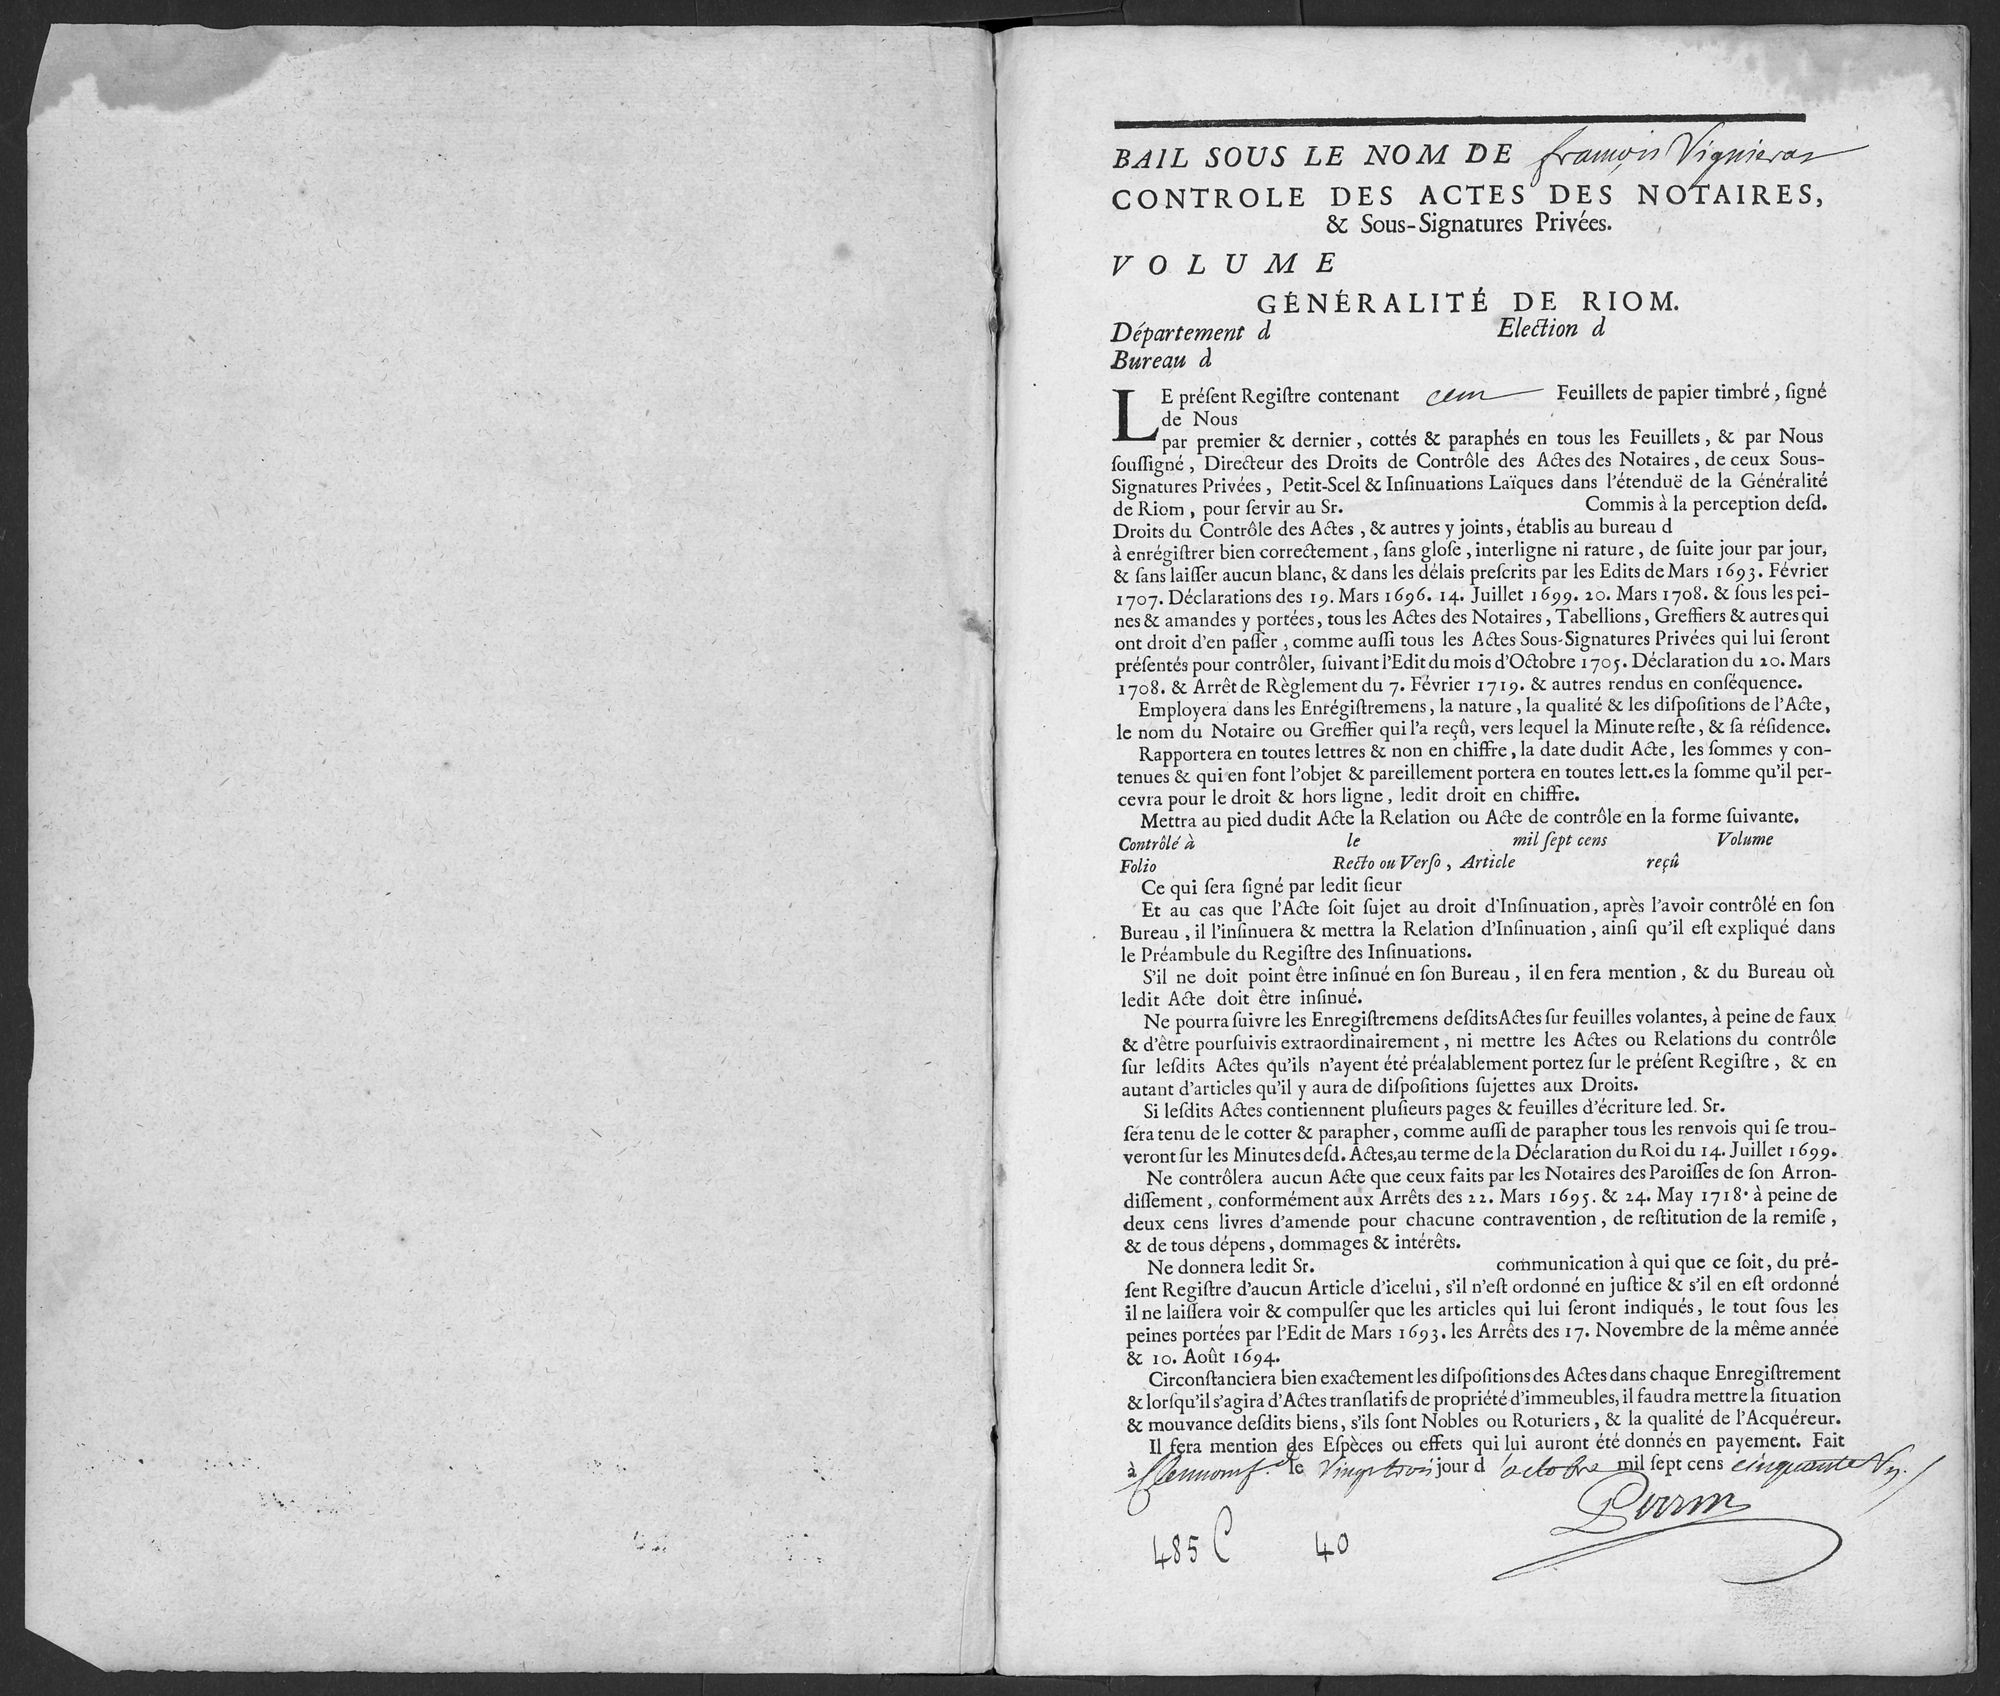 BAIL SOUS LE NOM DE françois Vignieras
CONTROLE DES ACTES DES NOTAIRES,
& Sous-Signatures Privées.
VOLUME
GÉNÉRALITÉ DE RIOM.
Département d Election d
Bureau d
LE préſent Regiſtre contenant cent Feuillets de papier timbré, ſigné
de Nous
par premier & dernier, cottés & paraphés en tous les Feuillets, & par Nous
ſouſſigné, Directeur des Droits de Contrôle des Actes des Notaires, de ceux Sous-
Signatures Privées, Petit-Scel & Inſinuations Laïques dans l'étenduë de la Généralité
de Riom, pour ſervir au Sr. Commis à la perception deſd.
Droits du Contrôle des Actes, & autres y joints, établis au bureau d
à enrégiſtrer bien correctement, ſans gloſe, interligne ni rature, de ſuite jour par jour,
& ſans laiſſer aucun blanc, & dans les délais preſcrits par les Edits de Mars 1693. Février
1707. Déclarations des 19. Mars 1696. 14. Juillet 1699. 20. Mars 1708. & ſous les pei-
nes & amandes y portées, tous les Actes des Notaires, Tabellions, Greffiers & autres qui
ont droit d'en paſſer, comme auſſi tous les Actes Sous-Signatures Privées qui lui ſeront
préſentés pour contrôler, ſuivant l'Edit du mois d'Octobre 1705. Déclaration du 20. Mars
1708. & Arrêt de Règlement du 7. Février 1719. & autres rendus en conſéquence.
Employera dans les Enrégiſtremens, la nature, la qualité & les diſpoſitions de l'Acte,
le nom du Notaire ou Greffier qui l'a reçû, vers lequel la Minute reſte, & ſa réſidence.
Rapportera en toutes lettres & non en chiffre, la date dudit Acte, les ſommes y con-
tenues & qui en font l'objet & pareillement portera en toutes lett.es la ſomme qu'il per-
cevra pour le droit & hors ligne, ledit droit en chiffre.
Mettra au pied dudit Acte la Relation ou Acte de contrôle en la forme ſuivante.
Contrôlé à le mil ſept cens Volume
Folio Recto ou Verſo, Article reçû
Ce qui ſera ſigné par ledit ſieur
Et au cas que l'Acte ſoit ſujet au droit d'Inſinuation, après l'avoir contrôlé en ſon
Bureau, il l'inſinuera & mettra la Relation d'Inſinuation, ainſi qu'il eſt expliqué dans
le Préambule du Regiſtre des Inſinuations.
S'il ne doit point être inſinué en ſon Bureau, il en fera mention, & du Bureau où
ledit Acte doit être inſinué.
Ne pourra ſuivre les Enregiſtremens deſdits Actes ſur feuilles volantes, à peine de faux
& d'être pourſuivis extraordinairement, ni mettre les Actes ou Relations du contrôle
ſur leſdits Actes qu'ils n'ayent été préalablement portez ſur le préſent Regiſtre, & en
autant d'articles qu'il y aura de diſpoſitions ſujettes aux Droits.
Si leſdits Actes contiennent pluſieurs pages & feuilles d'écriture led. Sr.
ſera tenu de le cotter & parapher, comme auſſi de parapher tous les renvois qui ſe trou-
veront ſur les Minutes deſd. Actes, au terme de la Déclaration du Roi du 14. Juillet 1699.
Ne contrôlera aucun Acte que ceux faits par les Notaires des Paroiſſes de ſon Arron-
diſſement, conformément aux Arrêts des 22. Mars 1695. & 24. May 1718. à peine de
deux cens livres d'amende pour chacune contravention, de reſtitution de la remiſe,
& de tous dépens, dommages & intérêts.
Ne donnera ledit Sr. communication à qui que ce ſoit, du pré-
ſent Regiſtre d'aucun Article d'icelui, s'il n'eſt ordonné en juſtice & s'il en eſt ordonné
il ne laiſſera voir & compulſer que les articles qui lui ſeront indiqués, le tout ſous les
peines portées par l'Edit de Mars 1693. les Arrêts des 17. Novembre de la même année
& 10. Août 1694.
Circonſtanciera bien exactement les diſpoſitions des Actes dans chaque Enregiſtrement
& lorſqu'il s'agira d'Actes tranſlatifs de propriété d'immeubles, il faudra mettre la ſituation
& mouvance deſdits biens, s'ils ſont Nobles ou Roturiers, & la qualité de l'Acquéreur.
Il fera mention des Eſpèces ou effets qui lui auront été donnés en payement. Fait
à Clermont f.d le Vingt trois jour d octobre mil ſept cens cinquante
485 C 40